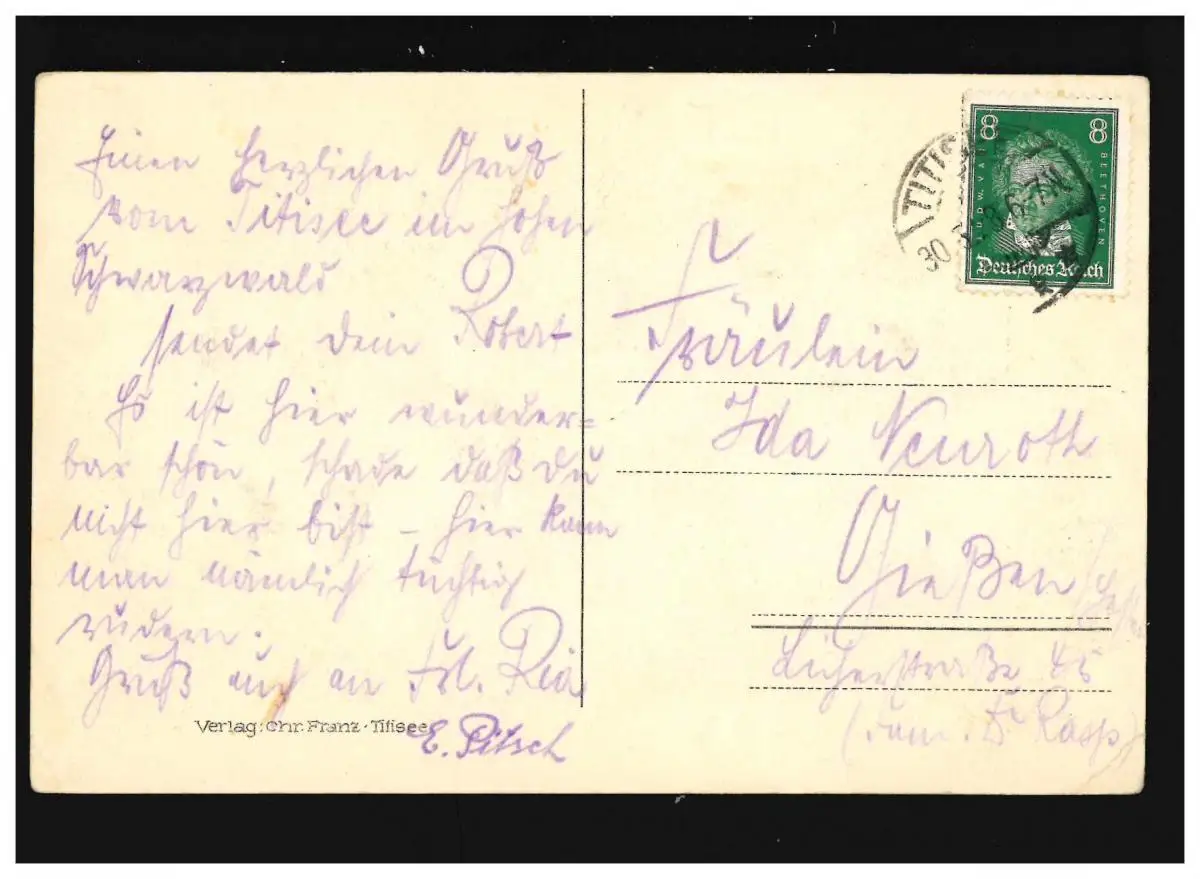 Einen herzlichen Gruß
vom Titisee im hohen
Schwarzwald
sendet dein Robert
Es ist hier wunder=
bar schön, schade daß du
nicht hier bist – hier kann
man nämlich tüchtig
rudern.
Gruß auch an Frl. Ria
E. Pitsch
Verlag: Chr. Franz - Titisee
TITIS
30.
8 8
LUDW. VAN BEETHOVEN
Deutsches Reich
Fräulein
Ida Neuroth
Gießen
Licherstraße 45